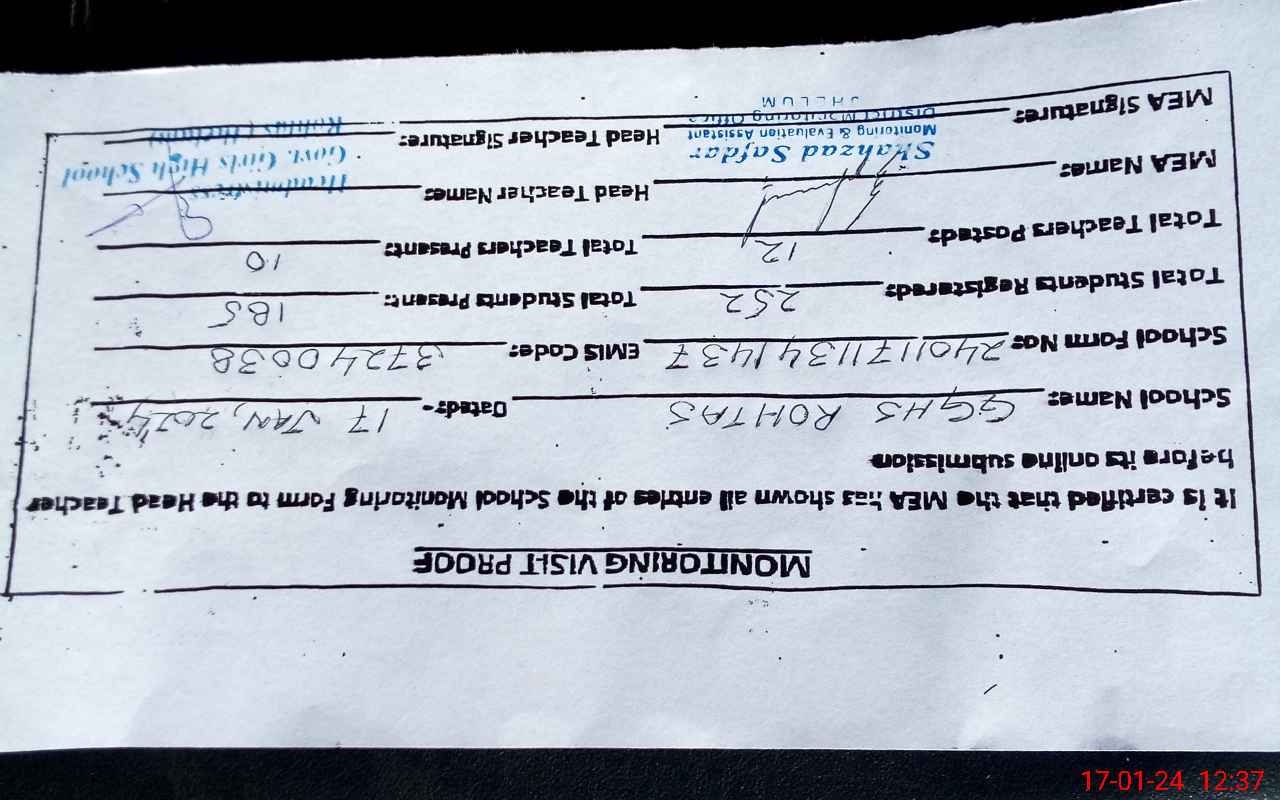 MONITORING VISIT PROOF
It is certified that the MEA has shown all entries of the School Monitoring Form to the Head Teacher
before its online submission
School Name: GGHS ROHTAS Dated:- 17 JAN, 2024
School Form No: 24011711341437 EMIS Code: 37240038
Total Students Registered: 252 Total Students Present: 185
Total Teachers Posted: 12 Total Teachers Present: 10
MEA Name: Head Teacher Name: Headmistress
Shahzad Safdar Govt. Girls High School
Monitoring & Evaluation Assistant
MEA Signature: District Monitoring Office Head Teacher Signature: Rohtas (Jhelum)
JHELUM
17-01-24 12:37